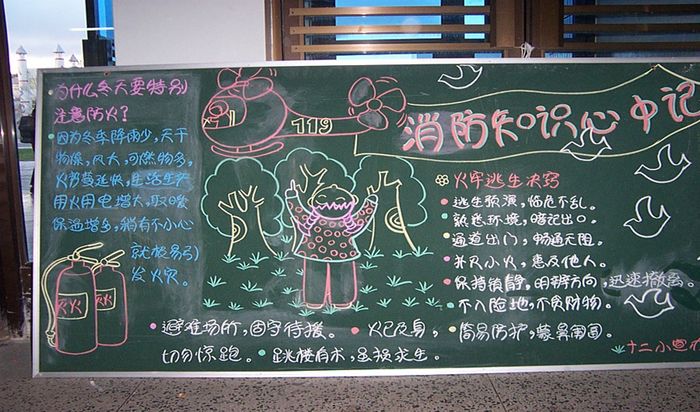 消防知识心中记
119
为什么冬天要特别
注意防火?
因为冬季降雨少,天干
物燥,风大,可燃物多,
火势蔓延快,生活生产
用火用电增大,取暖
保温增多,稍有不小心
就极易引
发火灾。
灭火
火
火牢逃生决窍
逃生预演,临危不乱。
熟悉环境,暗记出口。
通道出门,畅通无阻。
扑灭小火,惠及他人。
保持镇静,明辨方向,迅速撤离。
不入险地,不贪财物。
简易防护,蒙鼻匍匐。
避难场所,固守待援。
火已及身,
切勿惊跑。
跳楼有术,虽损求生。
十二小宣